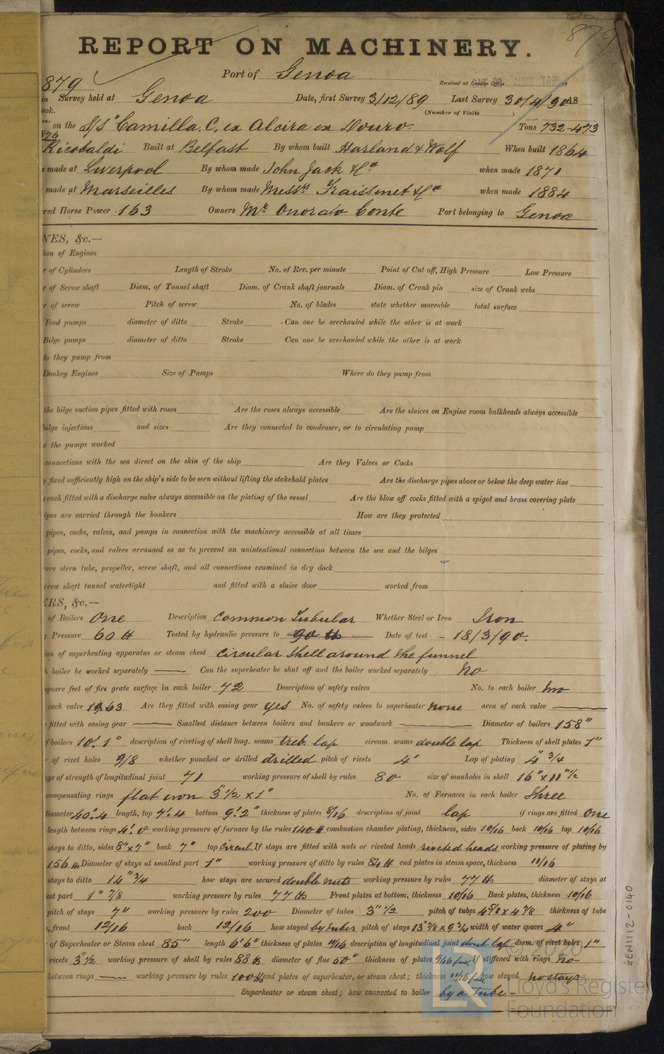 879
REPORT ON MACHINERY.
Port of Genoa
879
Survey held at Genoa Date, first Survey 3/12/89 Last Survey 30/4/90 18
(Number of Visits
on the S/S "Camilla. C, ex Alcira ex Douro. Tons 732-473
Built at Belfast By whom built Harland & Wolf When built 1864
made at Liverpool By whom made John Jack & Co when made 1871
made at Marseilles By whom made Messrs Fraissinet & Co when made 1884
red Horse Power 163 Owners Mr Onorato Conte Port belonging to Genoa
NES, &c.—
ion of Engines
r of Cylinders Length of Stroke No. of Rev. per minute Point of Cut off, High Pressure Low Pressure
r of Screw shaft Diam. of Tunnel shaft Diam. of Crank shaft journals Diam. of Crank pin size of Crank webs
r of screw Pitch of screw No. of blades state whether moveable total surface
Feed pumps diameter of ditto Stroke Can one be overhauled while the other is at work
Bilge pumps diameter of ditto Stroke Can one be overhauled while the other is at work
o they pump from
Donkey Engines Size of Pumps Where do they pump from
the bilge suction pipes fitted with roses Are the roses always accessible Are the sluices on Engine room bulkheads always accessible
bilge injections and sizes Are they connected to condenser, or to circulating pump
e the pumps worked
connections with the sea direct on the skin of the ship Are they Valves or Cocks
y fixed sufficiently high on the ship's side to be seen without lifting the stokehold plates Are the discharge pipes above or below the deep water line
each fitted with a discharge valve always accessible on the plating of the vessel Are the blow off cocks fitted with a spigot and brass covering plate
ipes are carried through the bunkers How are they protected
pipes, cocks, valves, and pumps in connection with the machinery accessible at all times
pipes, cocks, and valves arranged so as to prevent an unintentional connection between the sea and the bilges
ere stern tube, propeller, screw shaft, and all connections examined in dry dock
crew shaft tunnel watertight and fitted with a sluice door worked from
ERS, &c.—
of Boilers One Description Common Tubular Whether Steel or Iron Iron
Pressure 60 lb Tested by hydraulic pressure to 90 lb Date of test 18/3/90.
on of superheating apparatus or steam chest circular shell around the funnel
h boiler be worked separately Can the superheater be shut off and the boiler worked separately No
quare feet of fire grate surface in each boiler 72 Description of safety valves No. to each boiler two
each valve 1963 Are they fitted with easing gear yes No. of safety valves to superheater none area of each valve
fitted with easing gear Smallest distance between boilers and bunkers or woodwork Diameter of boilers 158"
f boilers 10'. 1" description of riveting of shell long. seams treb. lap circum. seams double lap Thickness of shell plates 1"
r of rivet holes 9/8 whether punched or drilled drilled pitch of rivets 4" Lap of plating 4" 3/4
ge of strength of longitudinal joint 71 working pressure of shell by rules 80 size of manholes in shell 16" x 11" 1/2
ompensating rings flat iron 3" 1/2 x 1" No. of Furnaces in each boiler Three
diameter 40". 4 length, top 7'. 4 bottom 9'. 2" thickness of plates 8/16 description of joint lap if rings are fitted One
length between rings 4'. 0" working pressure of furnace by the rules 140 lb combustion chamber plating, thickness, sides 10/16 back 10/16 top 10/16
stays to ditto, sides 8" x 7" back 7" top If stays are fitted with nuts or riveted heads riveted heads working pressure of plating by
156 lb Diameter of stays at smallest part 1" working pressure of ditto by rules end plates in steam space, thickness 11/16
stays to ditto 14" 3/4 how stays are secured double nuts working pressure by rules 77 lb diameter of stays at
est part 1" 7/8 working pressure by rules 77 lb Front plates at bottom, thickness 10/16 Back plates, thickness 10/16
pitch of stays 7" working pressure by rules 200 Diameter of tubes 3" 1/2 pitch of tubes 4 5/8 x 4 7/8 thickness of tube
, front 12/16 back 12/16 how stayed by tubes pitch of stays 13" 7/8 x 9" 3/4 width of water spaces 4"
of Superheater or Steam chest 85" length 6'6" thickness of plates 11/16 description of longitudinal joint doub. lap diam. of rivet holes 1"
rivets 3" 1/2 working pressure of shell by rules 88 lb diameter of flue 50" thickness of plates 9/16 If stiffened with rings No
between rings working pressure by rules 100 lb end plates of superheater, or steam chest; thickness how stayed no stays
Superheater or steam chest; how connected to boiler by a tube
GEN1112-0140
Lloyd's Register
Foundation